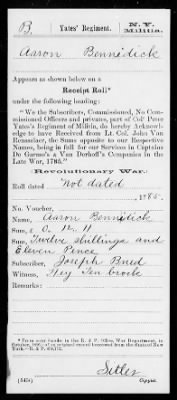 B. Yates' Regiment. N.Y. Militia.
Aaron Bennidick
Appears as shown below on a
Receipt Roll*
under the following heading:
"We the Subscribers, Commissioned, No Com-
missioned Officers and privates, part of Col° Peter
Yates's Regiment of Militia, do hereby Acknowl-
edge to have Received from Lt. Col. John Van
Renselaer, the Same opposite to our Respective
Names, being in full for our Services in Captain
De Garmo's & Van Derhoff's Companies in the
Late War, 1785."
Revolutionary War.
Roll dated Not dated, 1785.
No. Voucher,
Name, Aaron Bennidick
Sum, £ 0. 12. 11
Sum, Twelve shillings and
Eleven Pence
Subscriber, Joseph Bried
Witness, They Ten broek
Remarks:
* From copy
October
York.—R. & P.
Sitler
Copyist.